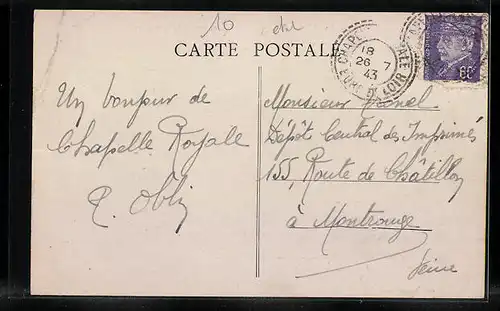 10
CARTE POSTALE
CHAPEL ALE
18
26 7
43
EURE ET LOIR
60
Un bonjour de
Chapelle Royale
Monsieur
Dépôt Central des Imprimés
155, Route de Châtillon
à Montrouge
Seine